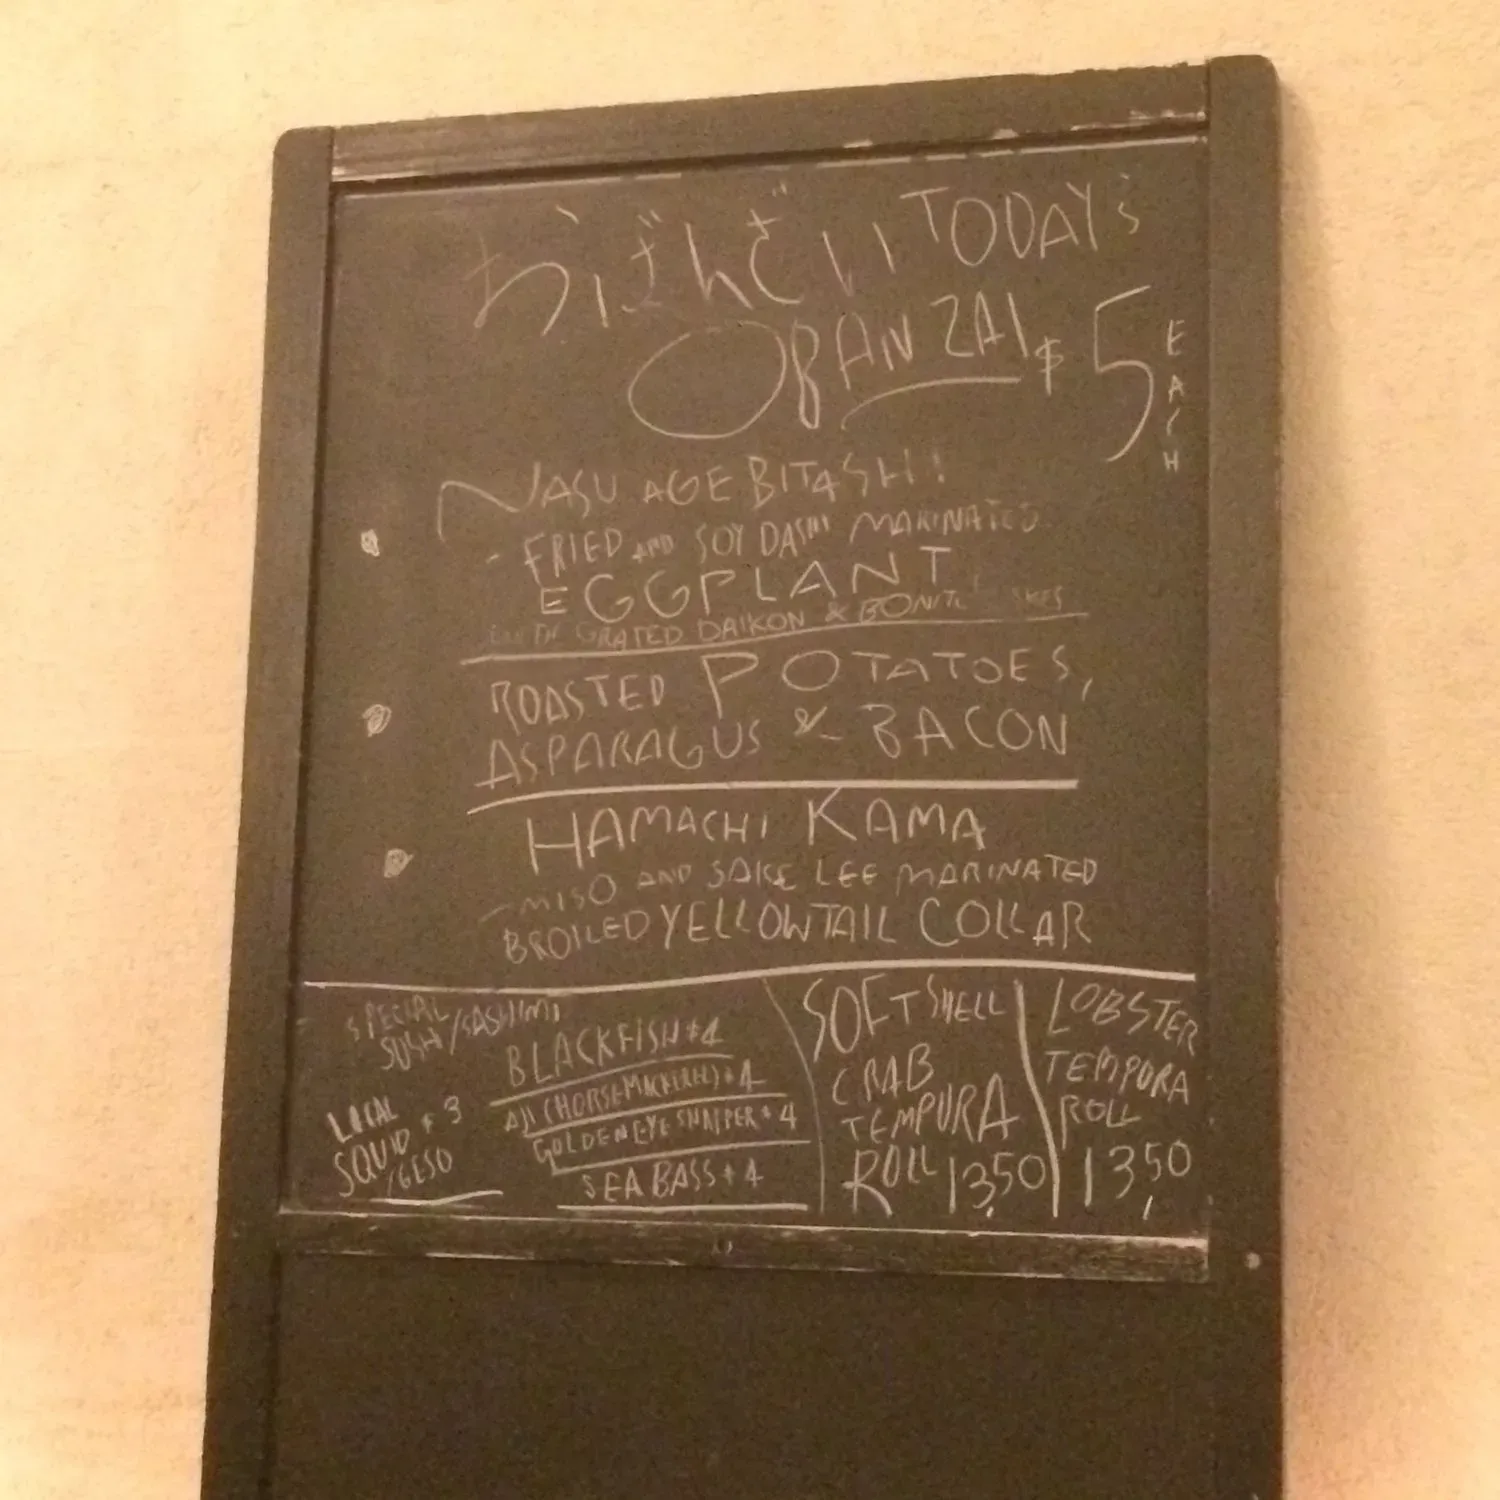 おばんざい TODAY'S
OBANZAI $5 EACH
NASU AGEBITASHI
- FRIED AND SOY DASHI MARINATED
EGGPLANT
WITH GRATED DAIKON & BONITO FLAKES
ROASTED POTATOES,
ASPARAGUS & BACON
HAMACHI KAMA
- MISO AND SAKE LEE MARINATED
BROILED YELLOWTAIL COLLAR
SPECIAL
SUSHI/SASHIMI
LOCAL
SQUID $3
/GESO
BLACKFISH $4
AJI (HORSE MACKEREL) $4
GOLDEN EYE SNAPPER $4
SEA BASS $4
SOFT SHELL
CRAB
TEMPURA
ROLL 13.50
LOBSTER
TEMPURA
ROLL
13.50